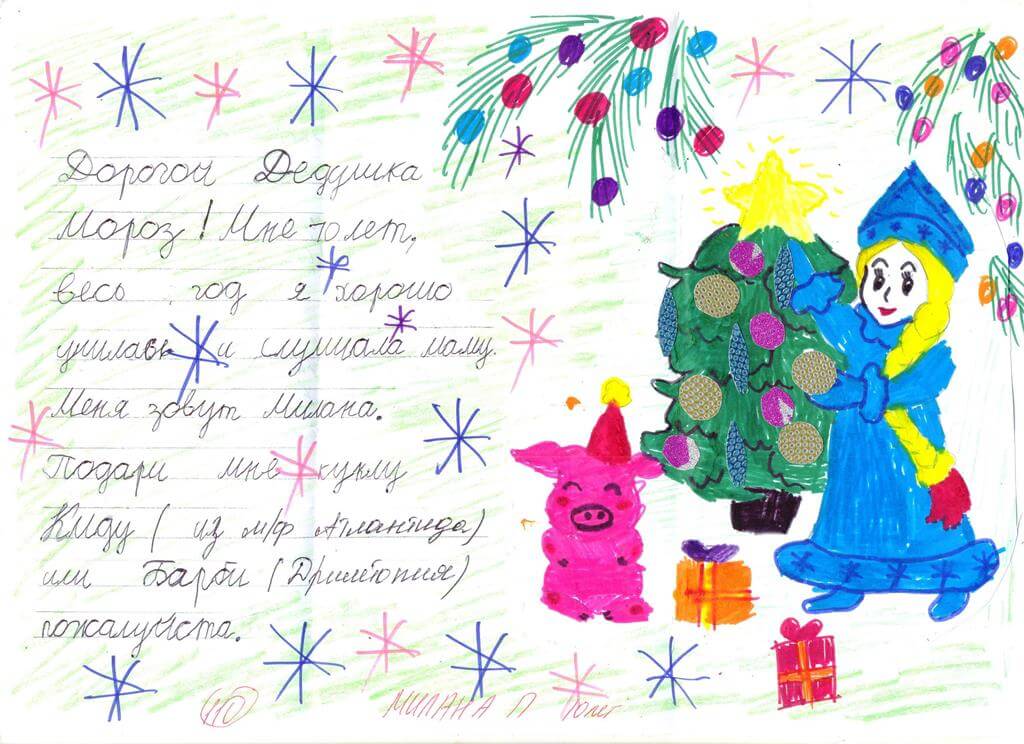 Дорогой Дедушка
Мороз! Мне 10 лет,
весь год я хорошо
училась и слушала маму.
Меня зовут Милана.
Подари мне куклу
Киду (из м/ф Атлантида)
или Барби (Дримтопия)
пожалуйста.
110
МИЛАНА П 10лет